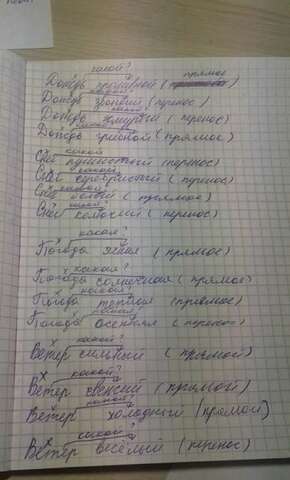 какой?
Дождь проливной (прямое)
Дождь грозный (перенос)
какой?
Дождь хмурый (перенос)
Дождь грибной (прямое)
какой
Снег пушистый (перенос)
какой
Снег серебристый (перенос)
какой
Снег белый (прямое)
какой?
Снег колючий (перенос)
какая?
Погода ясная (прямое)
какая?
Погода солнечная (прямое)
какая?
Погода тёплая (прямое)
какая
Погода осенняя (перенос)
какой?
Ветер сильный (прямой)
какой?
Ветер (прямой)
какой?
Ветер холодный (прямой)
какой?
Ветер весёлый (перенос)